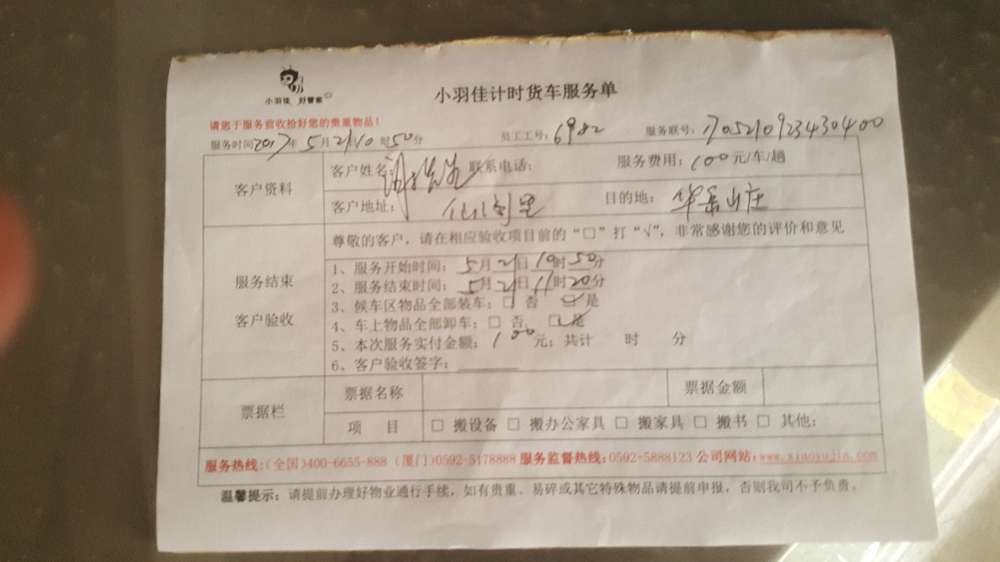 小羽佳 好管家
小羽佳计时货车服务单
请您于服务前收拾好您的贵重物品！
服务时间2017年5月21日10时50分 员工工号：6982 服务联号：1705210923430400
客户资料
客户姓名： 联系电话： 服务费用：100元/车/趟
客户地址： 目的地：华岳山庄
服务结束
客户验收
尊敬的客户，请在相应验收项目前的“□”打“√”，非常感谢您的评价和意见
1、服务开始时间：5月21日10时50分
2、服务结束时间：5月21日11时20分
3、候车区物品全部装车：□ 否 ☑是
4、车上物品全部卸车：□ 否 ☑是
5、本次服务实付金额：100元；共计 时 分
6、客户验收签字：
票据栏
票据名称 票据金额
项 目 □ 搬设备 □ 搬办公家具 □ 搬家具 □ 搬书 □ 其他：
服务热线：(全国)400-6655-888 (厦门)0592-5178888 服务监督热线：0592-5888123 公司网站：www.xiaoyujia.com
温馨提示：请提前办理好物业通行手续，如有贵重、易碎或其它特殊物品请提前申报，否则我司不予负责。